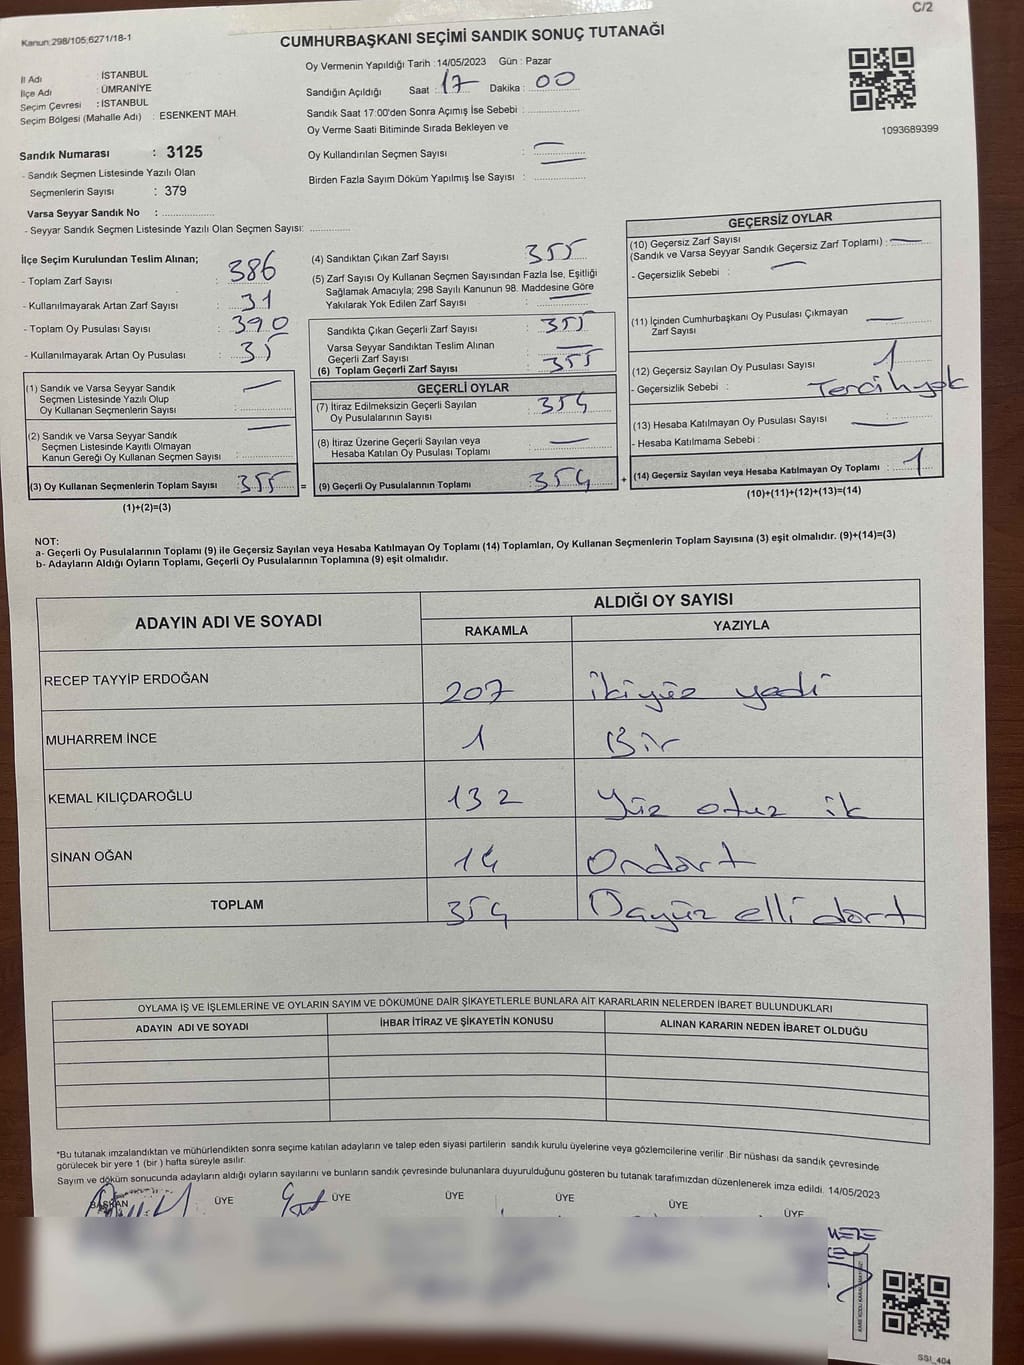 C/2
Kanun:298/105;6271/18-1
CUMHURBAŞKANI SEÇİMİ SANDIK SONUÇ TUTANAĞI
İl Adı : İSTANBUL
İlçe Adı : ÜMRANİYE
Seçim Çevresi : İSTANBUL
Seçim Bölgesi (Mahalle Adı) : ESENKENT MAH.
Sandık Numarası : 3125
- Sandık Seçmen Listesinde Yazılı Olan
Seçmenlerin Sayısı : 379
Varsa Seyyar Sandık No :
- Seyyar Sandık Seçmen Listesinde Yazılı Olan Seçmen Sayısı:
Oy Vermenin Yapıldığı Tarih : 14/05/2023 Gün : Pazar
Sandığın Açıldığı Saat : 17 Dakika : 00
Sandık Saat 17:00'den Sonra Açımış İse Sebebi :
Oy Verme Saati Bitiminde Sırada Bekleyen ve
Oy Kullandırılan Seçmen Sayısı :
Birden Fazla Sayım Döküm Yapılmış İse Sayısı :
1093689399
İlçe Seçim Kurulundan Teslim Alınan;
- Toplam Zarf Sayısı : 386
- Kullanılmayarak Artan Zarf Sayısı : 31
- Toplam Oy Pusulası Sayısı : 390
- Kullanılmayarak Artan Oy Pusulası : 35
(1) Sandık ve Varsa Seyyar Sandık
Seçmen Listesinde Yazılı Olup
Oy Kullanan Seçmenlerin Sayısı :
(2) Sandık ve Varsa Seyyar Sandık
Seçmen Listesinde Kayıtlı Olmayan
Kanun Gereği Oy Kullanan Seçmen Sayısı :
(3) Oy Kullanan Seçmenlerin Toplam Sayısı : 355 =
(1)+(2)=(3)
(4) Sandıktan Çıkan Zarf Sayısı : 355
(5) Zarf Sayısı Oy Kullanan Seçmen Sayısından Fazla İse, Eşitliği
Sağlamak Amacıyla; 298 Sayılı Kanunun 98. Maddesine Göre
Yakılarak Yok Edilen Zarf Sayısı :
Sandıkta Çıkan Geçerli Zarf Sayısı : 355
Varsa Seyyar Sandıktan Teslim Alınan
Geçerli Zarf Sayısı :
(6) Toplam Geçerli Zarf Sayısı : 355
GEÇERLİ OYLAR
(7) İtiraz Edilmeksizin Geçerli Sayılan
Oy Pusulalarının Sayısı : 354
(8) İtiraz Üzerine Geçerli Sayılan veya
Hesaba Katılan Oy Pusulası Toplamı :
(9) Geçerli Oy Pusulalarının Toplamı : 354 +
GEÇERSİZ OYLAR
(10) Geçersiz Zarf Sayısı
(Sandık ve Varsa Seyyar Sandık Geçersiz Zarf Toplamı) :
- Geçersizlik Sebebi :
(11) İçinden Cumhurbaşkanı Oy Pusulası Çıkmayan
Zarf Sayısı :
(12) Geçersiz Sayılan Oy Pusulası Sayısı : 1
- Geçersizlik Sebebi : Tercih yok
(13) Hesaba Katılmayan Oy Pusulası Sayısı :
- Hesaba Katılmama Sebebi :
(14) Geçersiz Sayılan veya Hesaba Katılmayan Oy Toplamı : 1
(10)+(11)+(12)+(13)=(14)
NOT:
a- Geçerli Oy Pusulalarının Toplamı (9) ile Geçersiz Sayılan veya Hesaba Katılmayan Oy Toplamı (14) Toplamları, Oy Kullanan Seçmenlerin Toplam Sayısına (3) eşit olmalıdır. (9)+(14)=(3)
b- Adayların Aldığı Oyların Toplamı, Geçerli Oy Pusulalarının Toplamına (9) eşit olmalıdır.
ADAYIN ADI VE SOYADI
ALDIĞI OY SAYISI
RAKAMLA YAZIYLA
RECEP TAYYİP ERDOĞAN 207 ikiyüz yedi
MUHARREM İNCE 1 Bir
KEMAL KILIÇDAROĞLU 132 Yüz otuz ik
SİNAN OĞAN 14 Ondört
TOPLAM 354 elli dört
OYLAMA İŞ VE İŞLEMLERİNE VE OYLARIN SAYIM VE DÖKÜMÜNE DAİR ŞİKAYETLERLE BUNLARA AİT KARARLARIN NELERDEN İBARET BULUNDUKLARI
ADAYIN ADI VE SOYADI İHBAR İTİRAZ VE ŞİKAYETİN KONUSU ALINAN KARARIN NEDEN İBARET OLDUĞU
*Bu tutanak imzalandıktan ve mühürlendikten sonra seçime katılan adayların ve talep eden siyasi partilerin sandık kurulu üyelerine veya gözlemcilerine verilir .Bir nüshası da sandık çevresinde
görülecek bir yere 1 (bir ) hafta süreyle asılır.
Sayım ve döküm sonucunda adayların aldığı oyların sayılarını ve bunların sandık çevresinde bulunanlara duyurulduğunu gösteren bu tutanak tarafımızdan düzenlenerek imza edildi. 14/05/2023
BAŞKAN ÜYE ÜYE ÜYE ÜYE ÜYE ÜYE
SSI_404